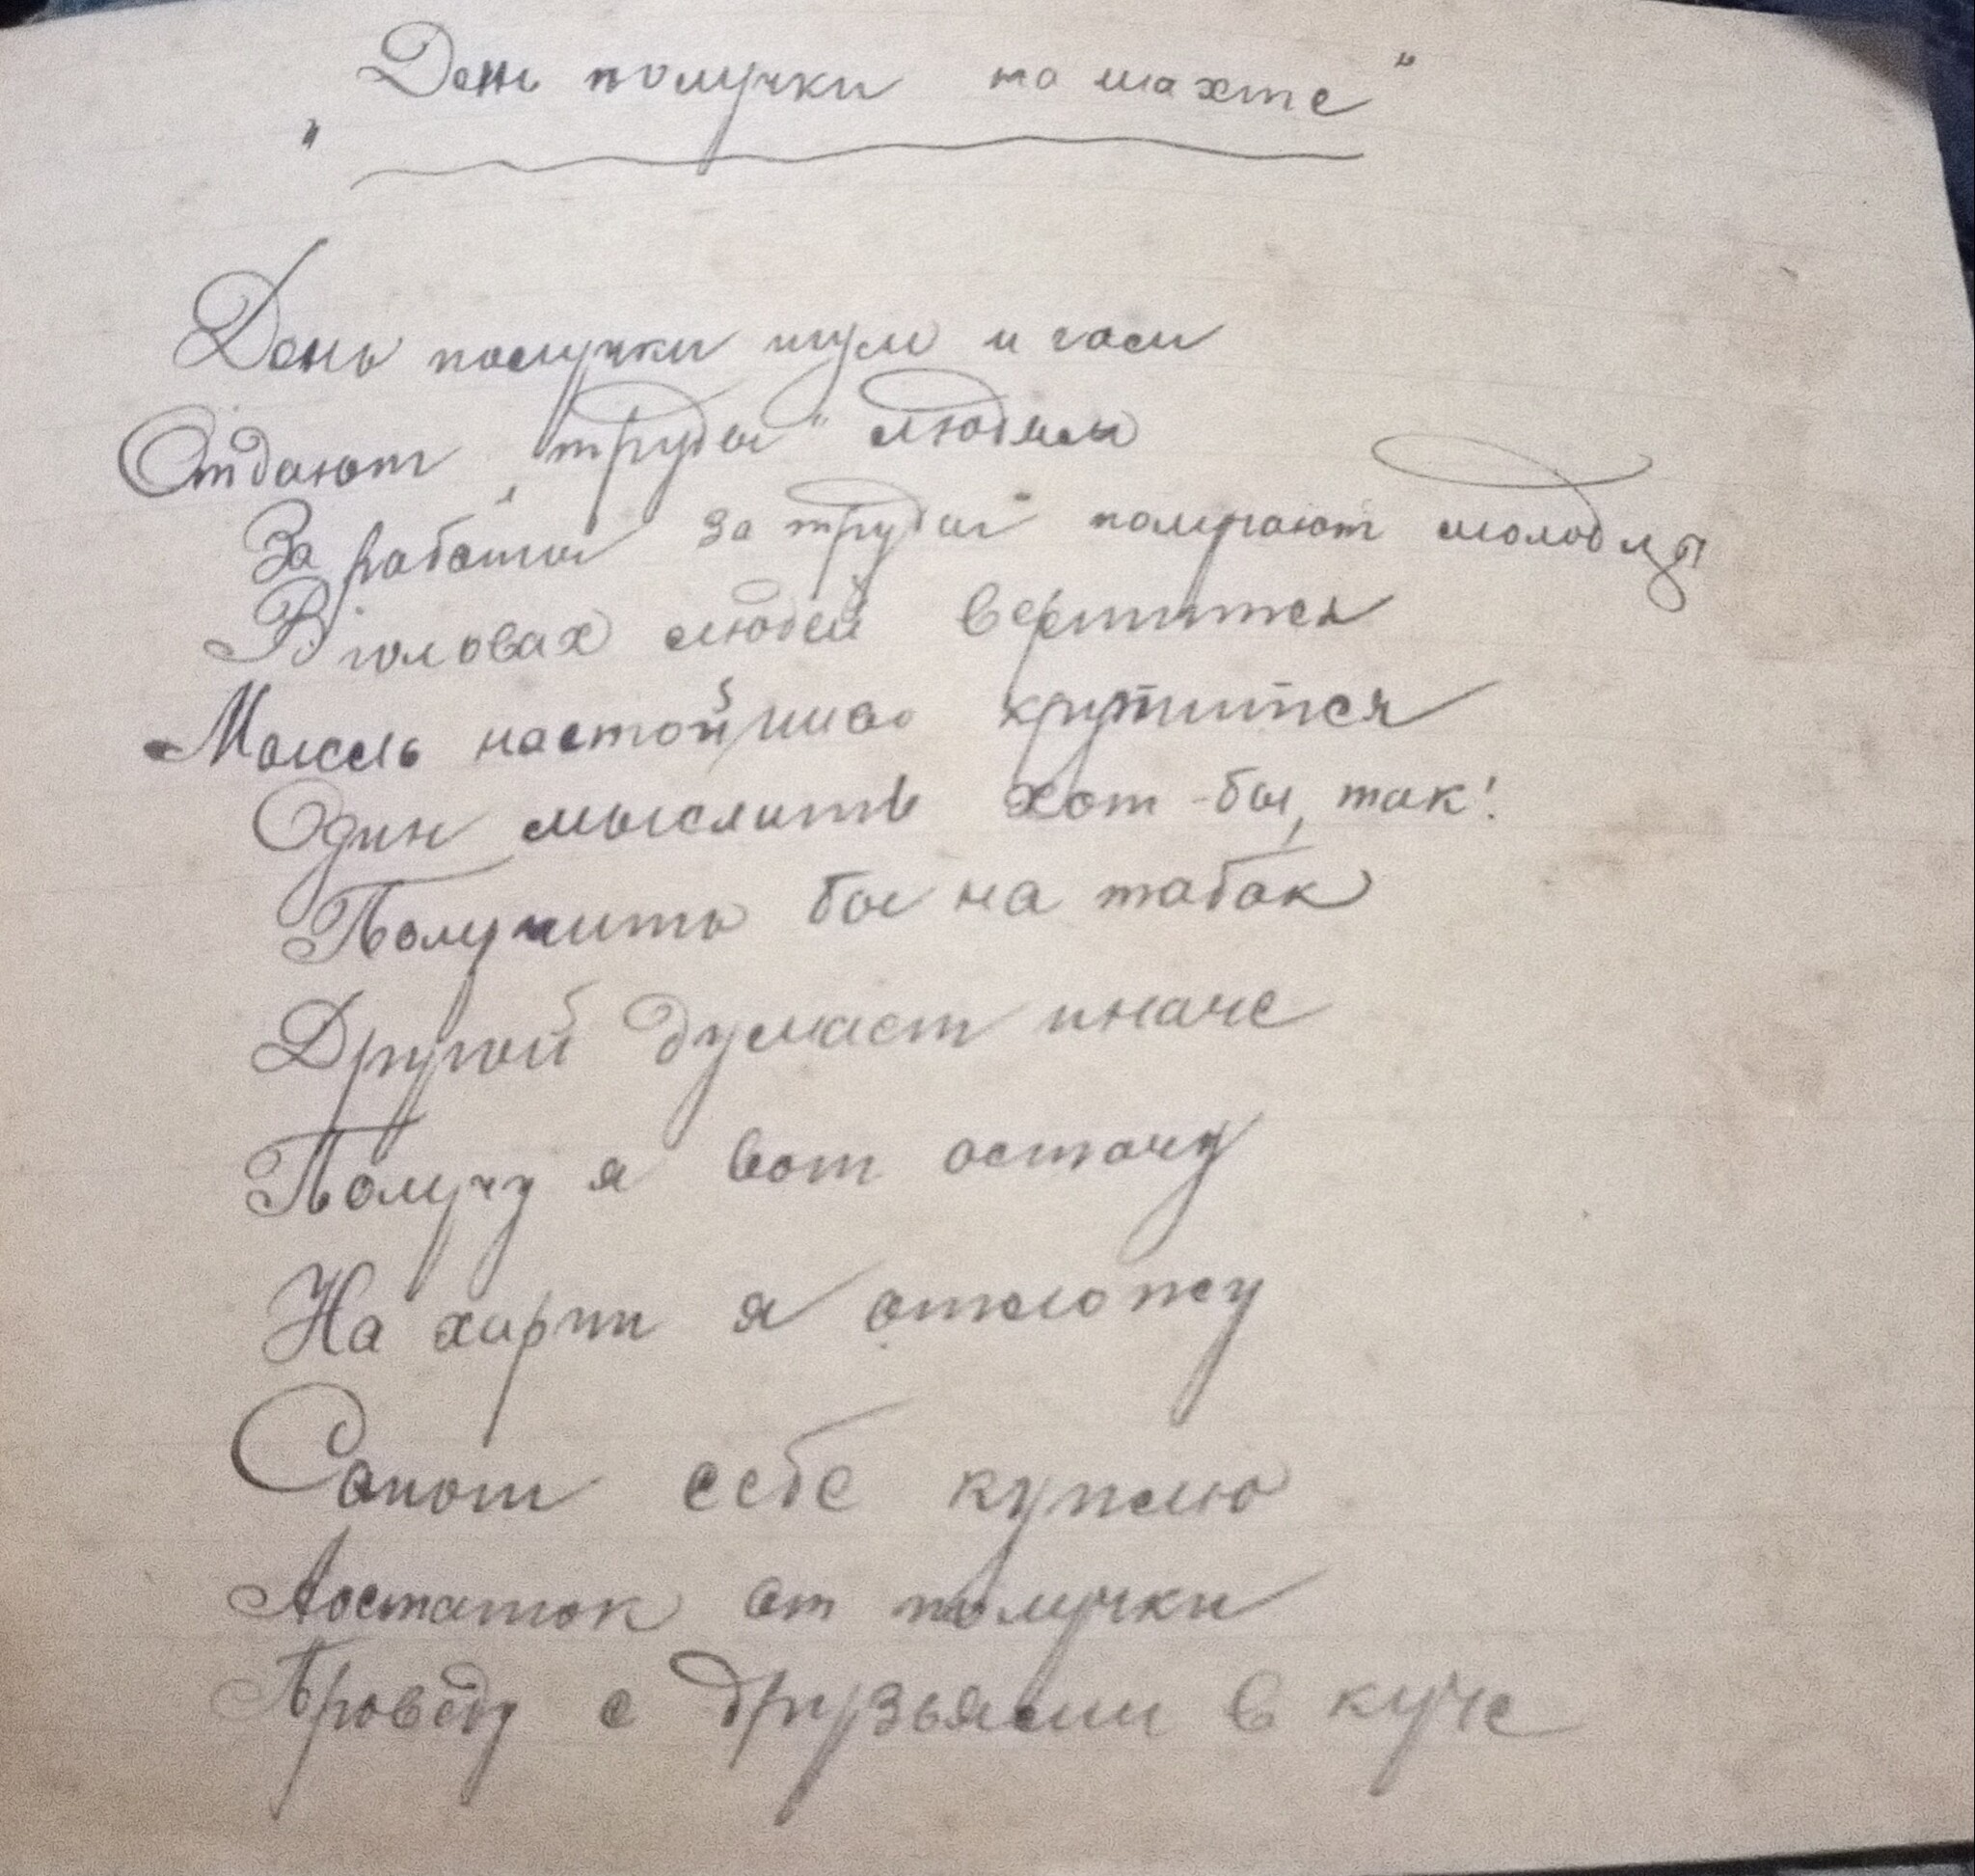 "День получки на шахте"
День получки шум и гам
Отдают "труды" людям
За работы за труды" получают молодцы
В головах людей вертится
Мысль настойчиво крутится
Один мыслить хот-бы, так!
Получить бы на табак
Другой думает иначе
Получу я вот остачу
На харчи я отложу
Сапот себе куплю
Аостаток от получки
Проведу с друзьями в куче